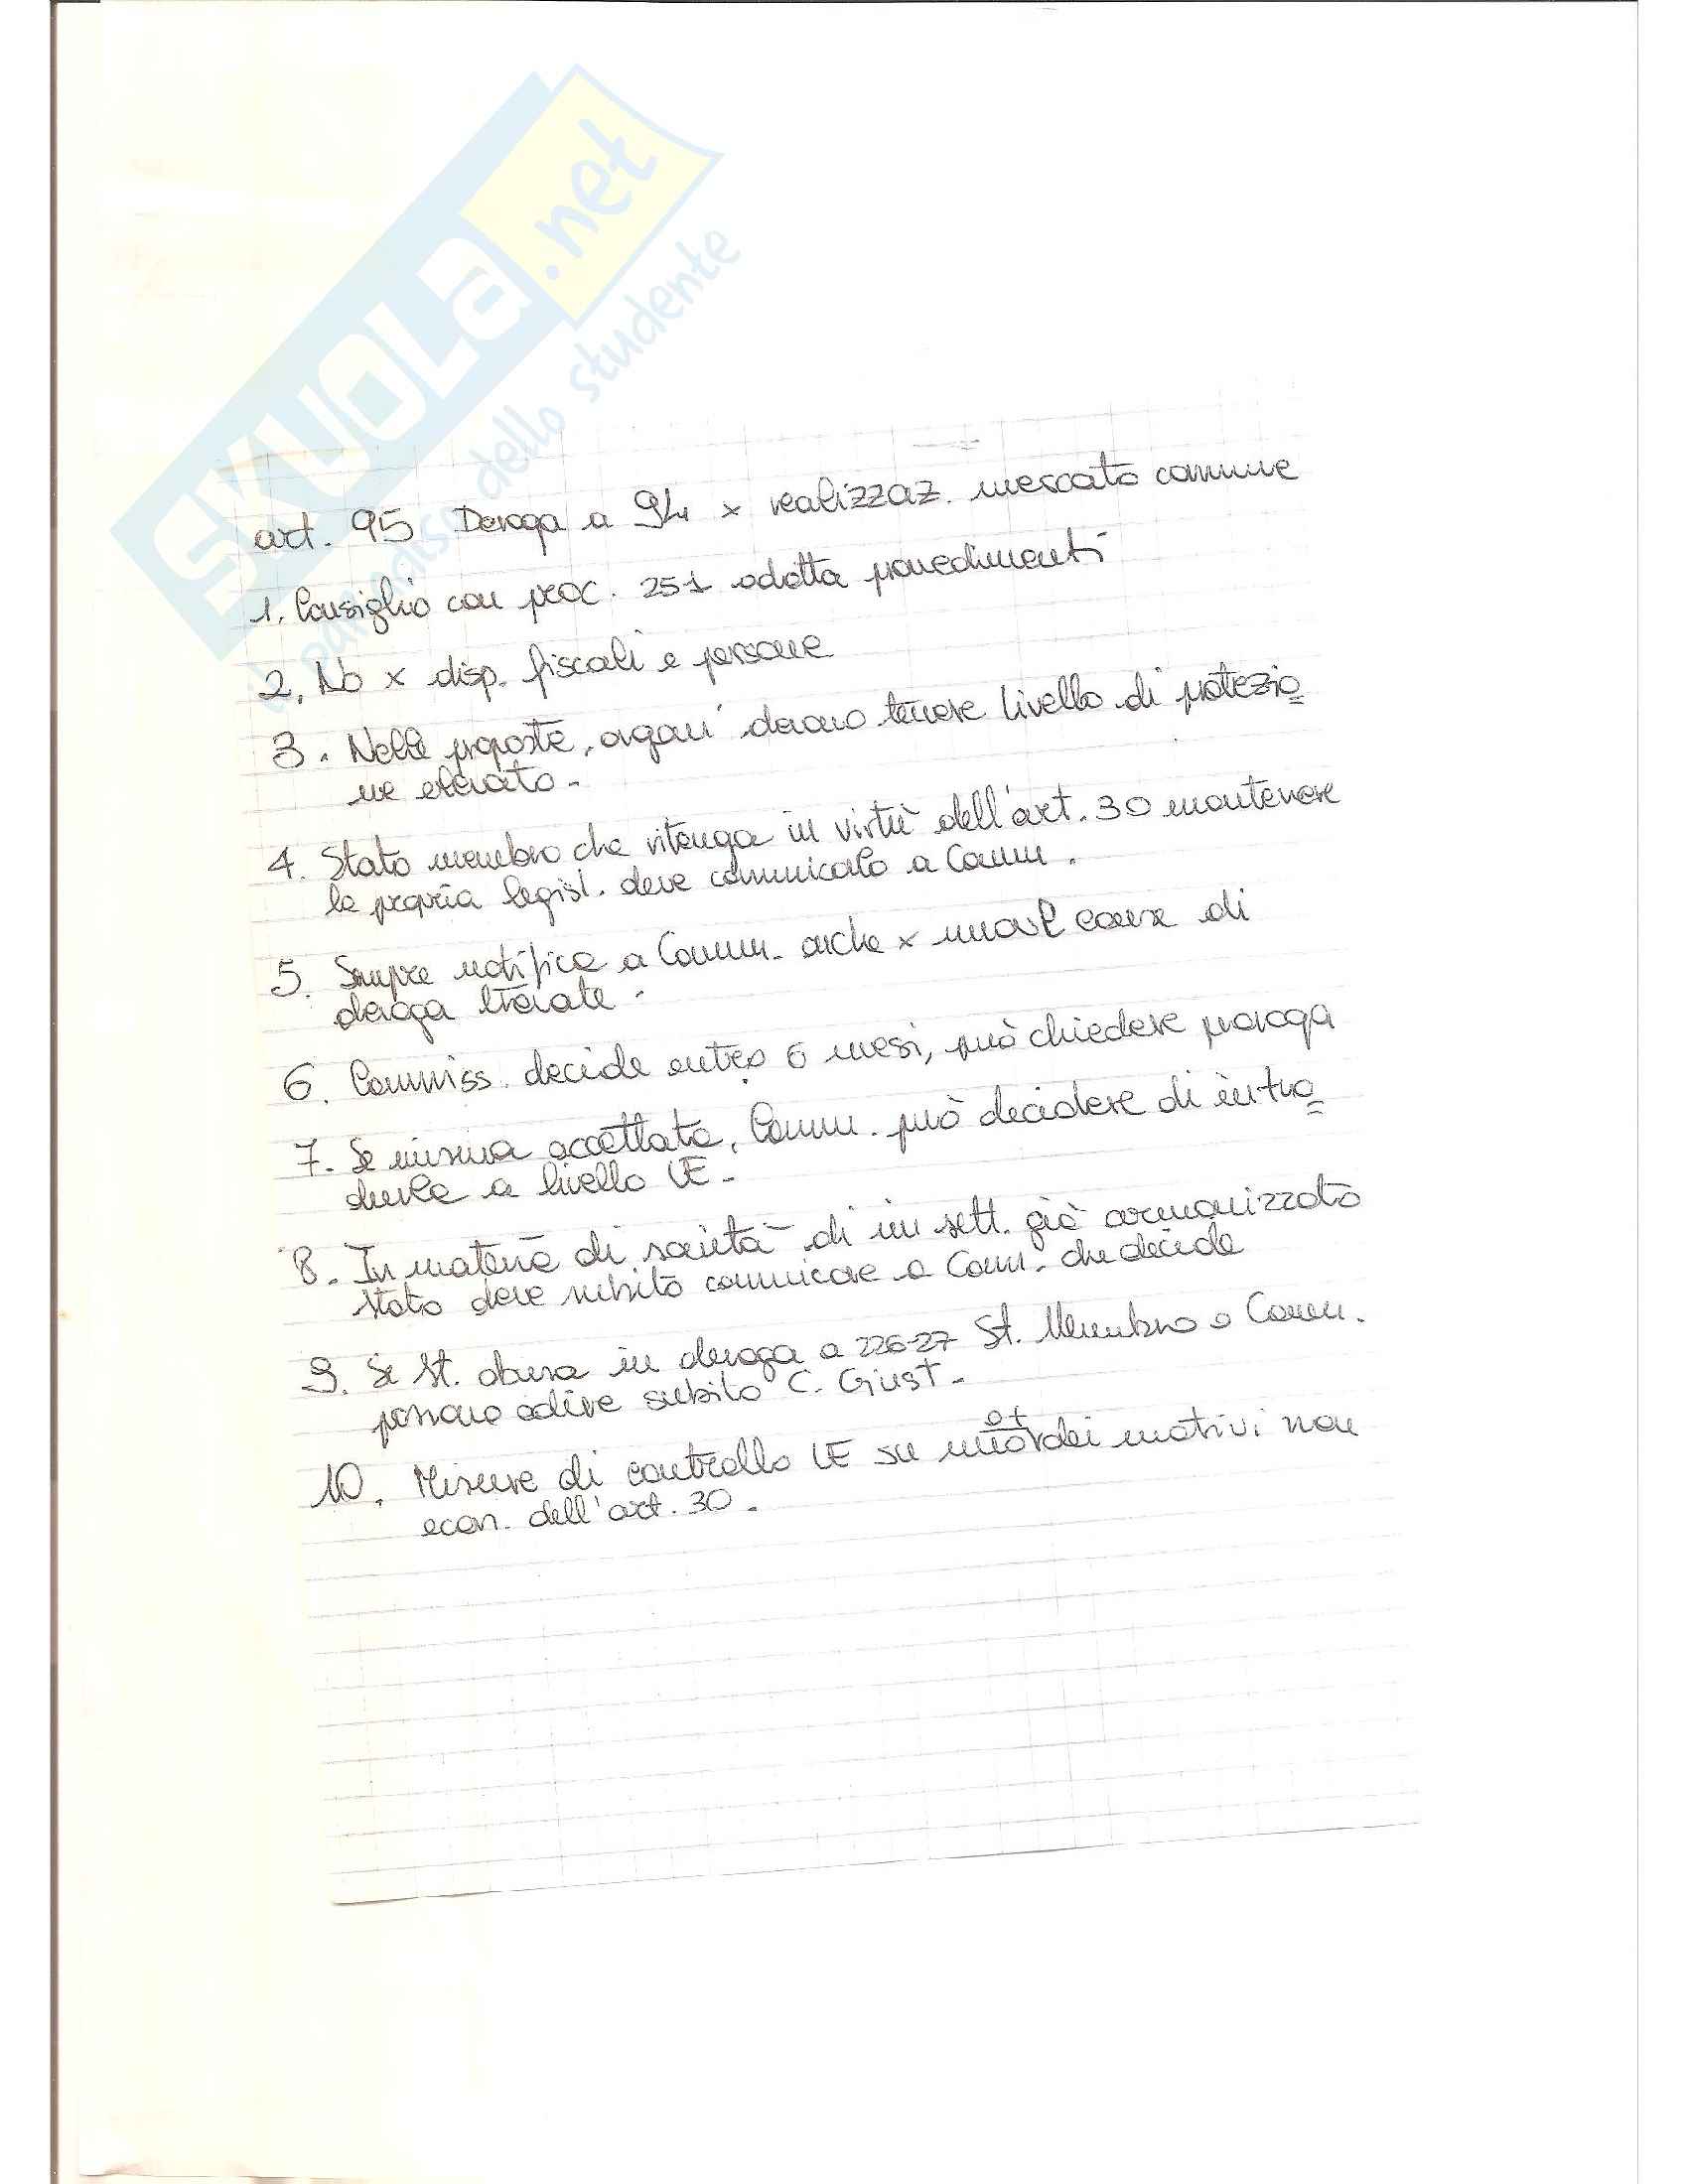 SKUOLA.net
il paradiso dello studente
art. 95 Deroga a 94 x realizzaz. mercato comune
1. Consiglio con proc. 251 adotta provvedimenti
2. No x disp. fiscali e persone
3. Nelle proposte, organi devono tenere livello di protezio
ne elevato.
4. Stato membro che ritenga in virtù dell'art. 30 mantenere
la propria legisl. deve comunicarlo a Comm.
5. Sempre notifica a Comm. anche x nuove cause di
deroga
6. Commiss. decide entro 6 mesi, può chiedere proroga
7. Se misura accettata, Comm. può decidere di intro
durla a livello UE.
8. In materia di sanità di un sett. già armonizzato
Stato deve subito comunicare a Com. che decide
9. Se St. abusa in deroga a 226-27 St. Membro o Comm.
possono adire subito C. Giust.
10. Misure di controllo UE su dei motivi non
econ. dell'art. 30.